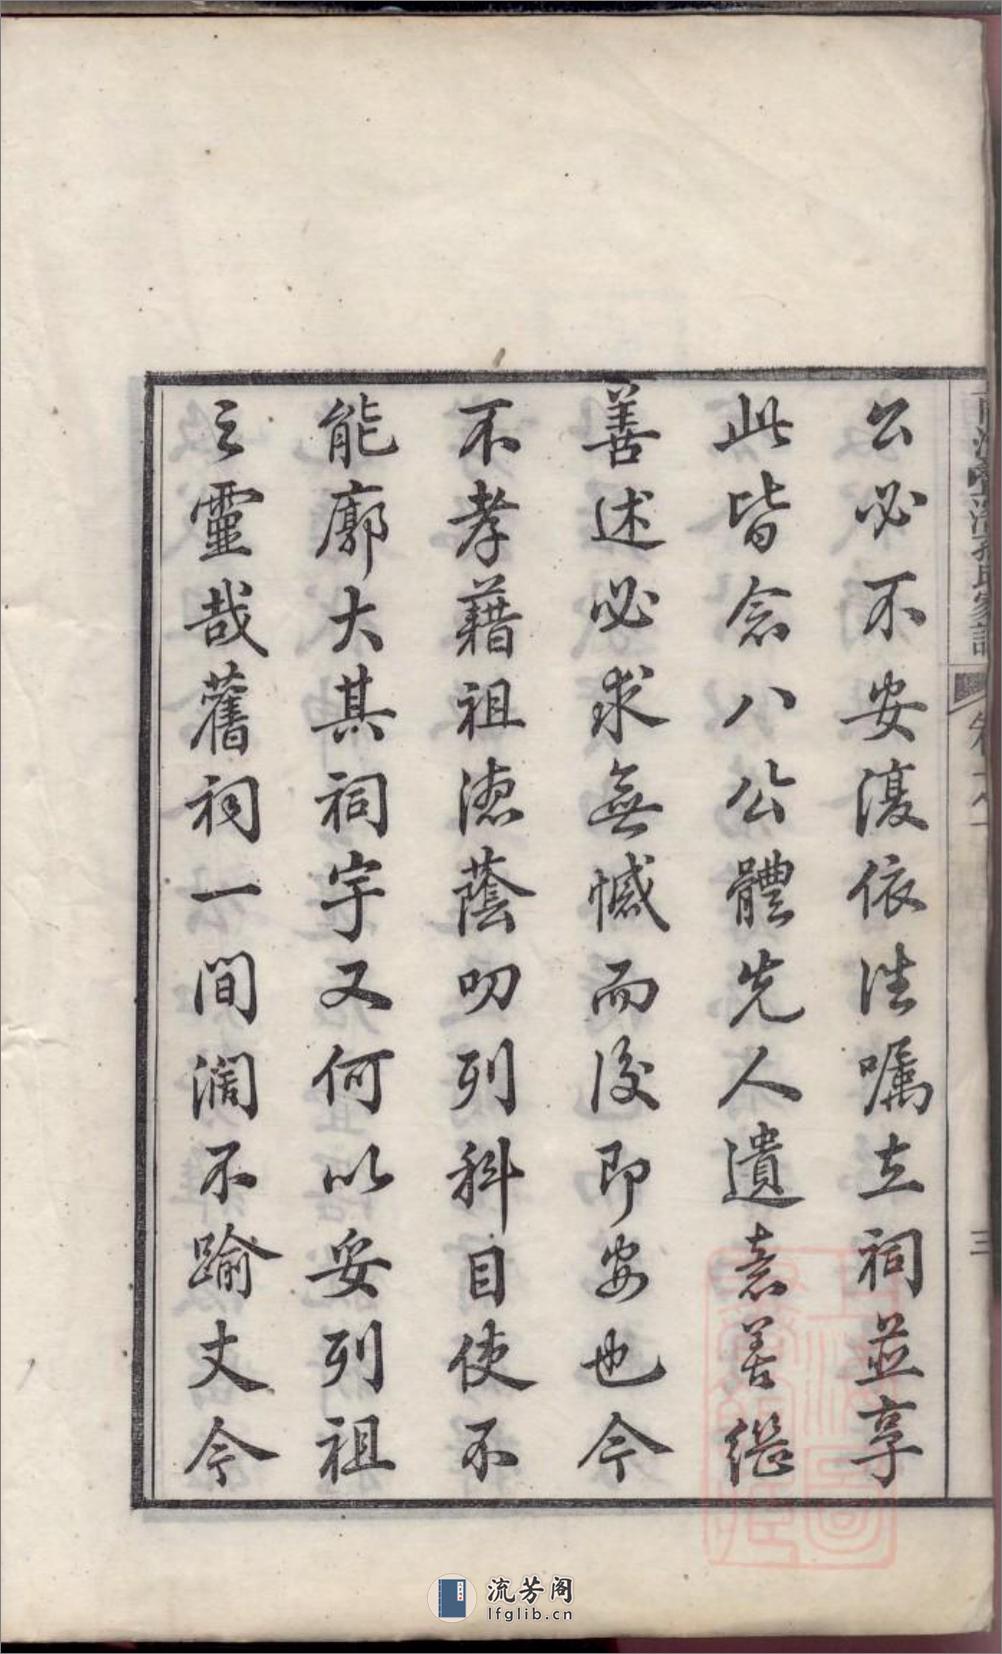 公必不安復依法囑立祠並享
此皆念八公體先人遺意善繼
善述必求無憾而後即安也今
不孝藉祖德蔭叨列科目使不
能廓大其祠宇又何以妥列祖
之靈哉舊祠一間濶不踰丈今
孔氏家譜
三
流芳阁
lfglib.cn